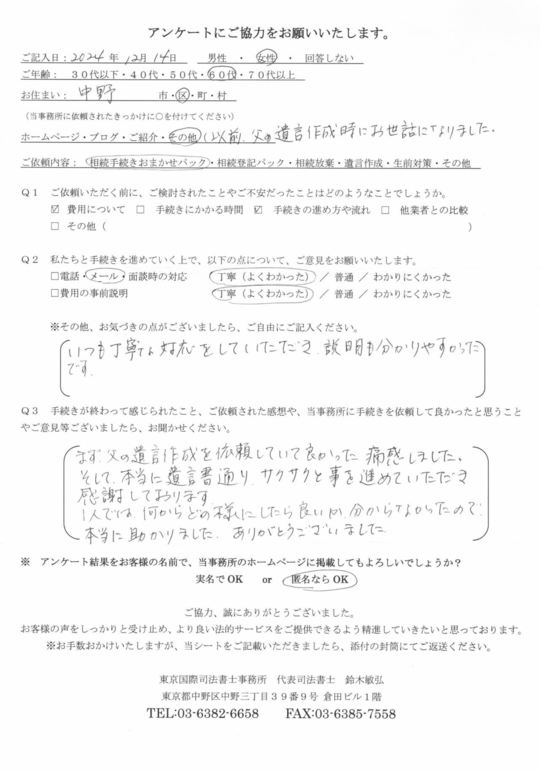 アンケートにご協力をお願いいたします。
ご記入日：2024年 12月 14日　男性 ・ 女性 ・ 回答しない
ご年齢：　30代以下・40代・50代・60代・70代以上
お住まい：　中野　市・区・町・村
（当事務所に依頼されたきっかけに○を付けてください）
ホームページ・ブログ・ご紹介・その他（以前、父の遺言作成時にお世話になりました。
ご依頼内容：相続手続きおまかせパック・相続登記パック・相続放棄・遺言作成・生前対策・その他
Q1　ご依頼いただく前に、ご検討されたことやご不安だったことはどのようなことでしょうか。
☑ 費用について　□ 手続きにかかる時間　☑ 手続きの進め方や流れ　□ 他業者との比較
□ その他（　）
Q2　私たちと手続きを進めていく上で、以下の点について、ご意見をお願いいたします。
□電話・メール・面談時の対応　丁寧（よくわかった）／ 普通 ／ わかりにくかった
□費用の事前説明　丁寧（よくわかった）／ 普通 ／ わかりにくかった
※その他、お気づきの点がございましたら、ご自由にご記入ください。
いつも丁寧な対応をしていただき、説明も分かりやすかった
です。
Q3　手続きが終わって感じられたこと、ご依頼された感想や、当事務所に手続きを依頼して良かったと思うこと
やご意見等ございましたら、お聞かせください。
まず父の遺言作成を依頼していて良かった 痛感しました。
そして、本当に遺言書通り、サクサクと事を進めていただき
感謝しております。
1人では、何からどの様にしたら良いか分からなかったので、
本当に助かりました。ありがとうございました。
※ アンケート結果をお客様の名前で、当事務所のホームページに掲載してもよろしいでしょうか？
実名でOK　or　匿名ならOK
ご協力、誠にありがとうございました。
お客様の声をしっかりと受け止め、より良い法的サービスをご提供できるよう精進していきたいと思っております。
※お手数おかけいたしますが、当シートをご記載いただきましたら、添付の封筒にてご返送ください。
東京国際司法書士事務所　代表司法書士　鈴木敏弘
東京都中野区中野三丁目39番9号 倉田ビル1階
TEL:03-6382-6658　FAX:03-6385-7558